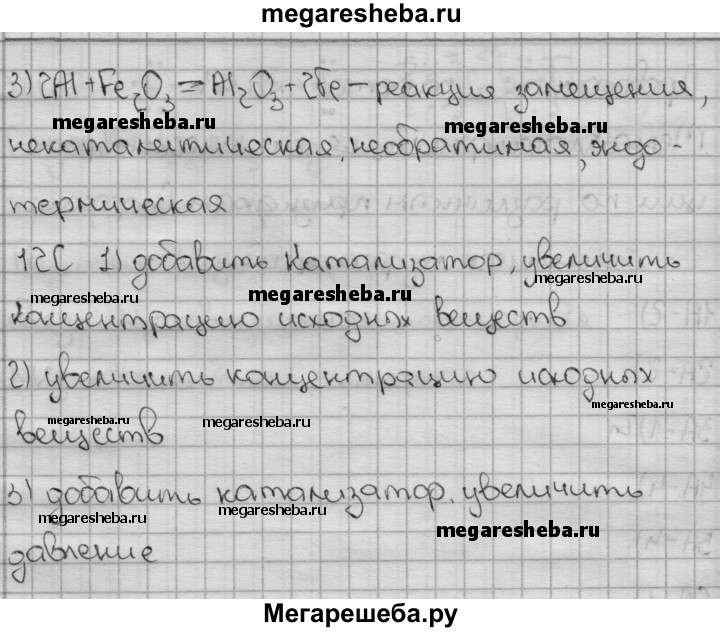 megaresheba.ru
3) 2Al + Fe2O3 = Al2O3 + 2Fe - реакция замещения,
megaresheba.ru megaresheba.ru
некаталитическая, необратимая, эндо-
термическая
12С 1) добавить катализатор, увеличить
megaresheba.ru megaresheba.ru megaresheba.ru
концентрацию исходных веществ
2) увеличить концентрацию исходных
megaresheba.ru megaresheba.ru megaresheba.ru
веществ
3) добавить катализатор, увеличить
megaresheba.ru megaresheba.ru megaresheba.ru
давление
Мегарешеба.ру